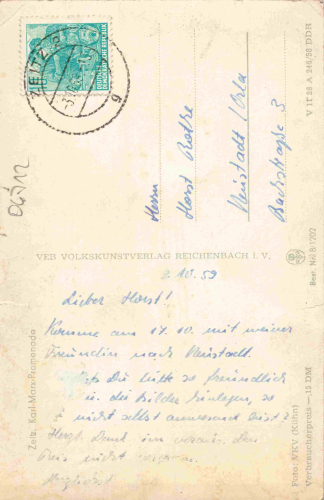 ZEITZ
DEUTSCHE DEMOKRATISCHE REPUBLIK
Herrn
Horst Rothe
Neustadt/Orla
Bachstrasse 3
V 11 28 A 246/58 DDH
VEB VOLKSKUNSTVERLAG REICHENBACH I. V.
Best. Nr. B 1702
2.10.59
Lieber Horst!
Komme am 17.10. mit meiner
Freundin nach Neustadt.
Du bitte so freundlich
u. die Bilder hinlegen, so
nicht selbst anwesend bist?
Herzl. Dank im voraus. Den
Preis nicht vergessen.
Zeitz, Karl-Marx-Promenade
Foto: VKV (Kühn)
Verbraucherpreis —,15 DM